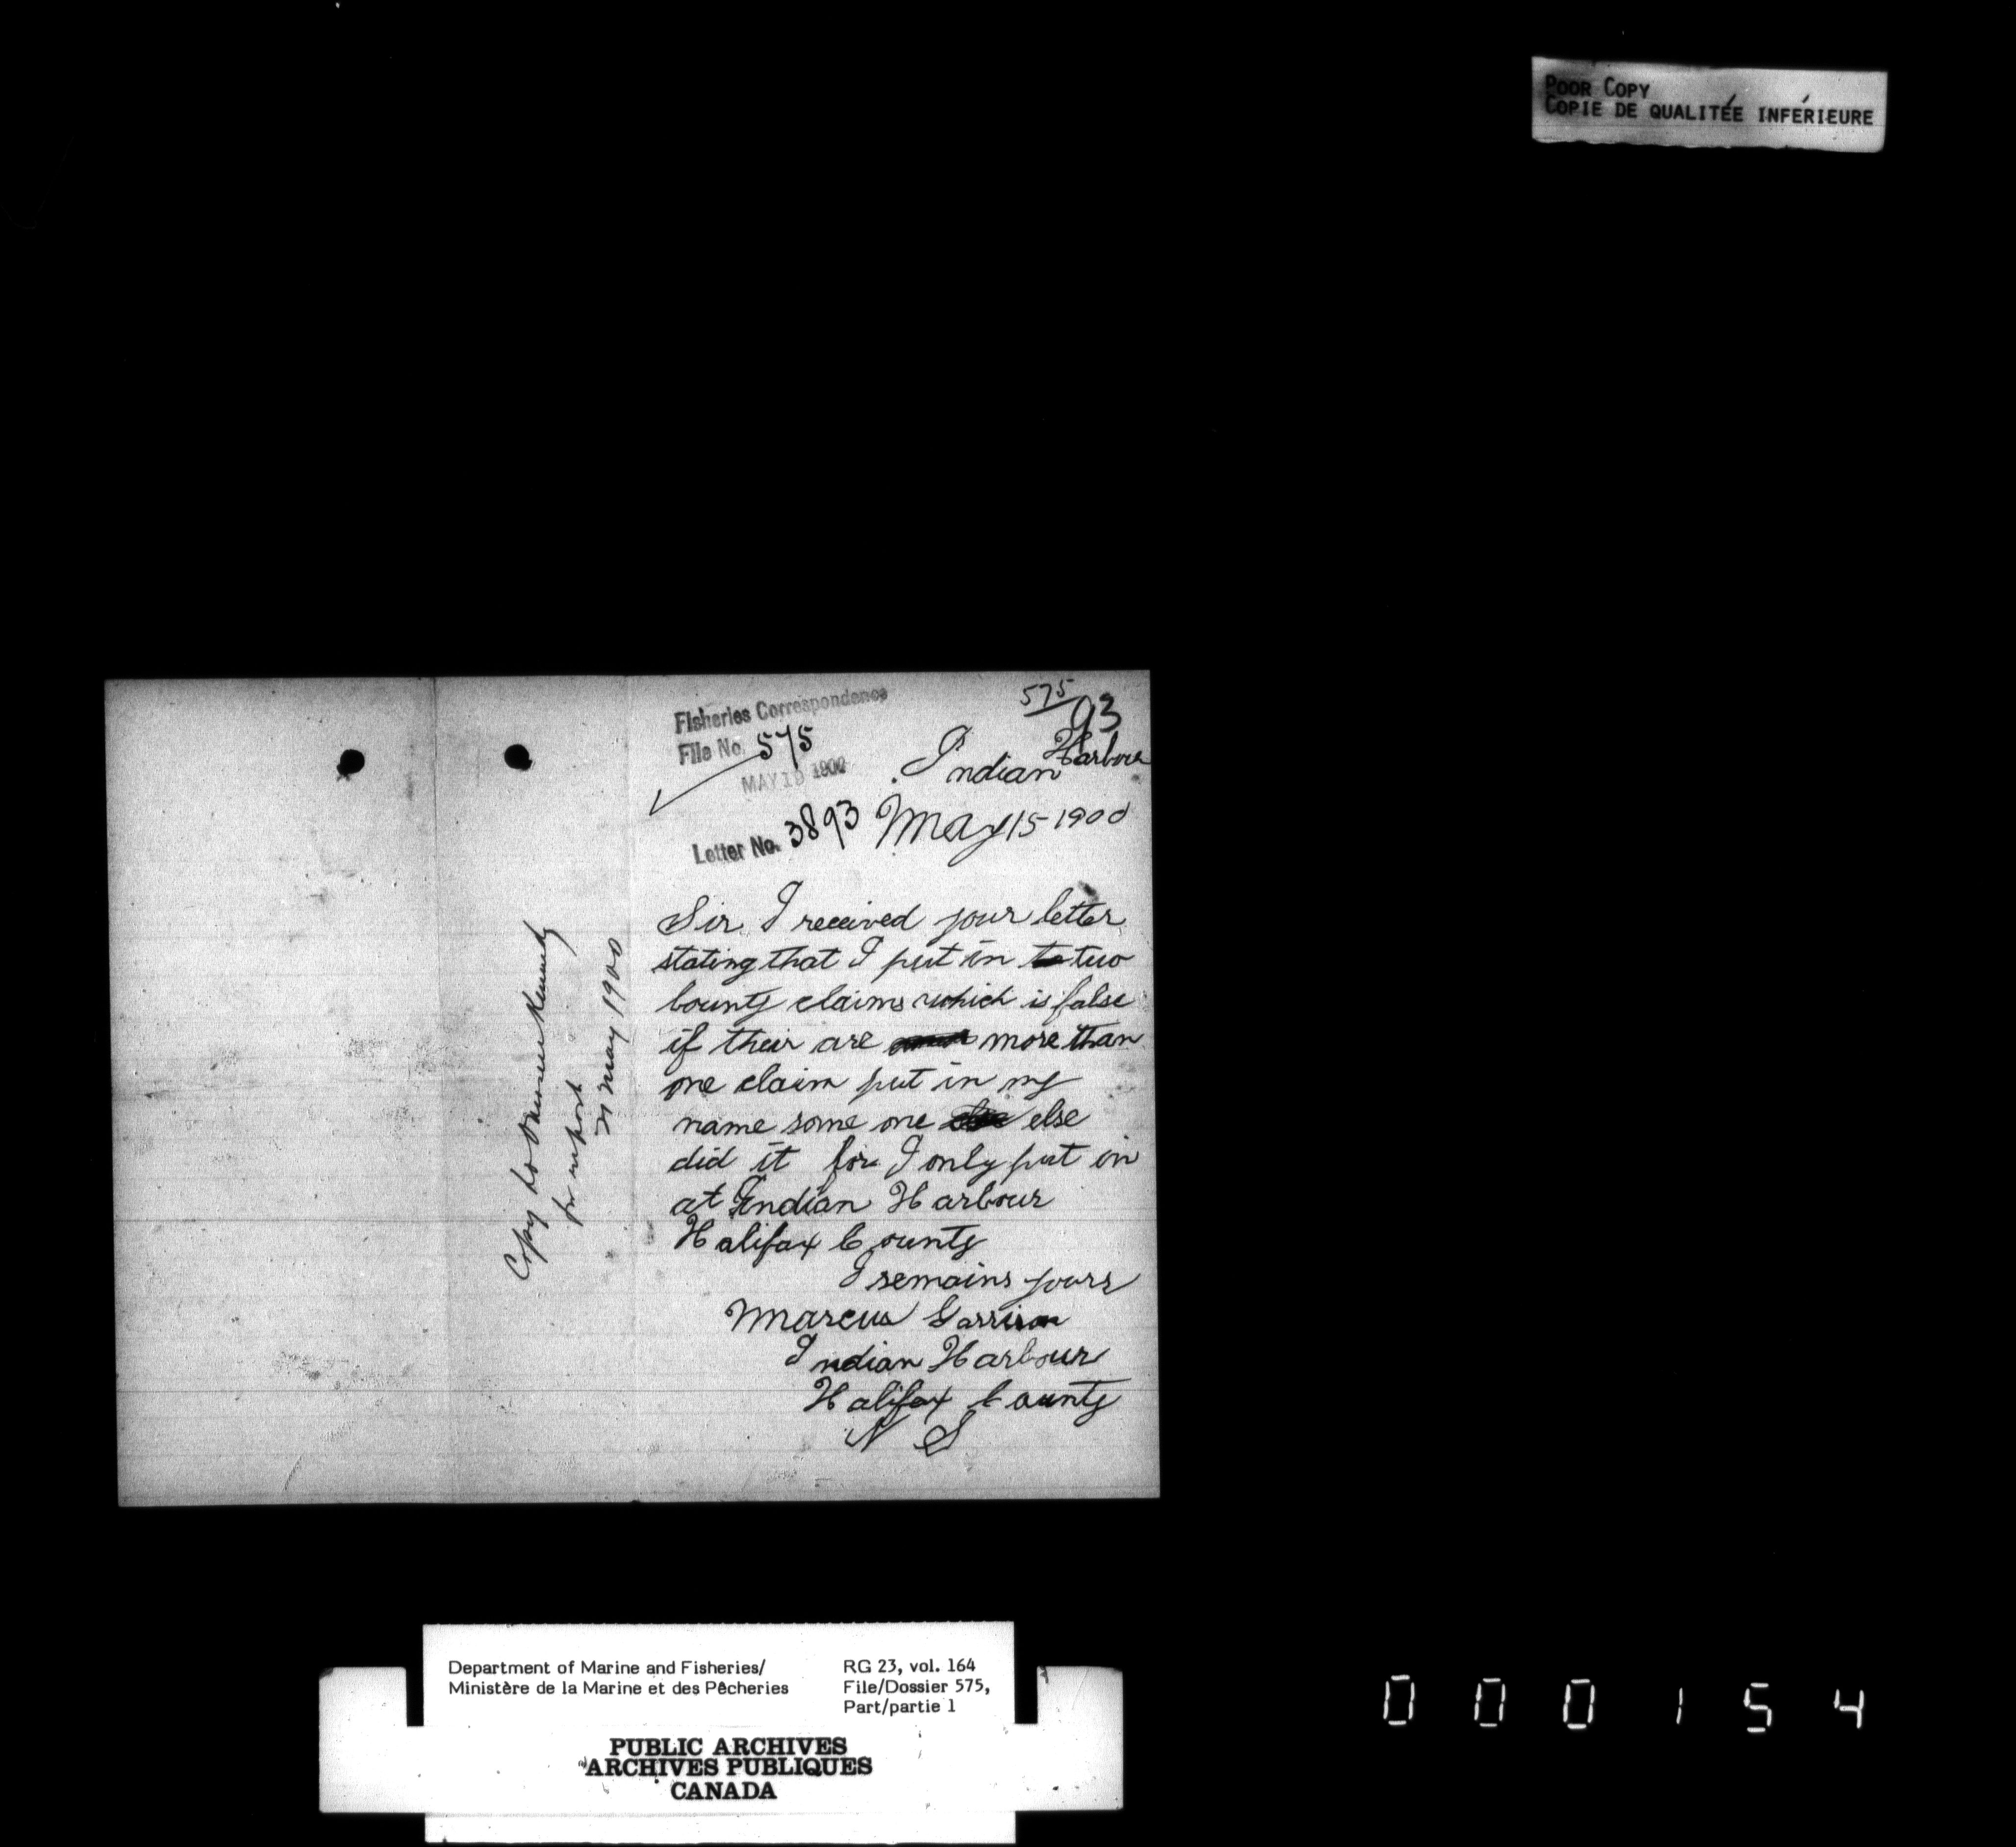 POOR COPY
COPIE DE QUALITÉE INFÉRIEURE
Fisheries Correspondence
File No. 575
MAY 19 1900
Letter No. 3893
575
93
Indian Harbour
May 15 1900
Sir I received your letter
stating that I put in to two
bounty claims which is false
if their are more than
one claim put in my
name some one else else
did it for I only put in
at Indian Harbour
Halifax County
I remains yours
Marcus Garrison
Indian Harbour
Halifax County
N S
Copy to Kennedy
for report
21 May 1900
Department of Marine and Fisheries/
Ministère de la Marine et des Pêcheries
RG 23, vol. 164
File/Dossier 575,
Part/partie 1
PUBLIC ARCHIVES
ARCHIVES PUBLIQUES
CANADA
000154